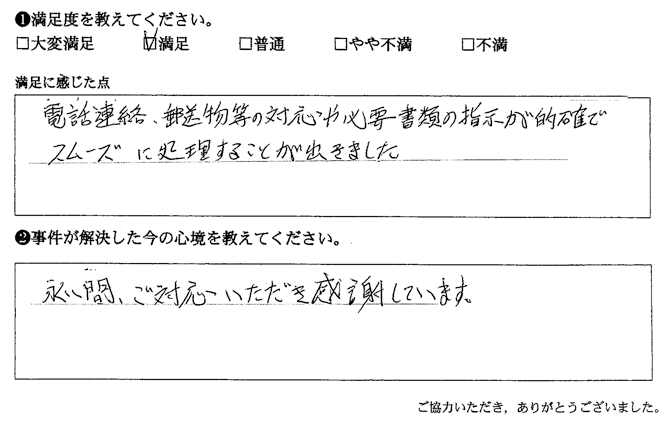 ❶満足度を教えてください。
□大変満足 ☑満足 □普通 □やや不満 □不満
満足に感じた点
電話連絡、郵送物等の対応や必要書類の指示が的確で
スムーズに処理することが出きました
❷事件が解決した今の心境を教えてください。
永い間、ご対応いただき感謝しています。
ご協力いただき，ありがとうございました。